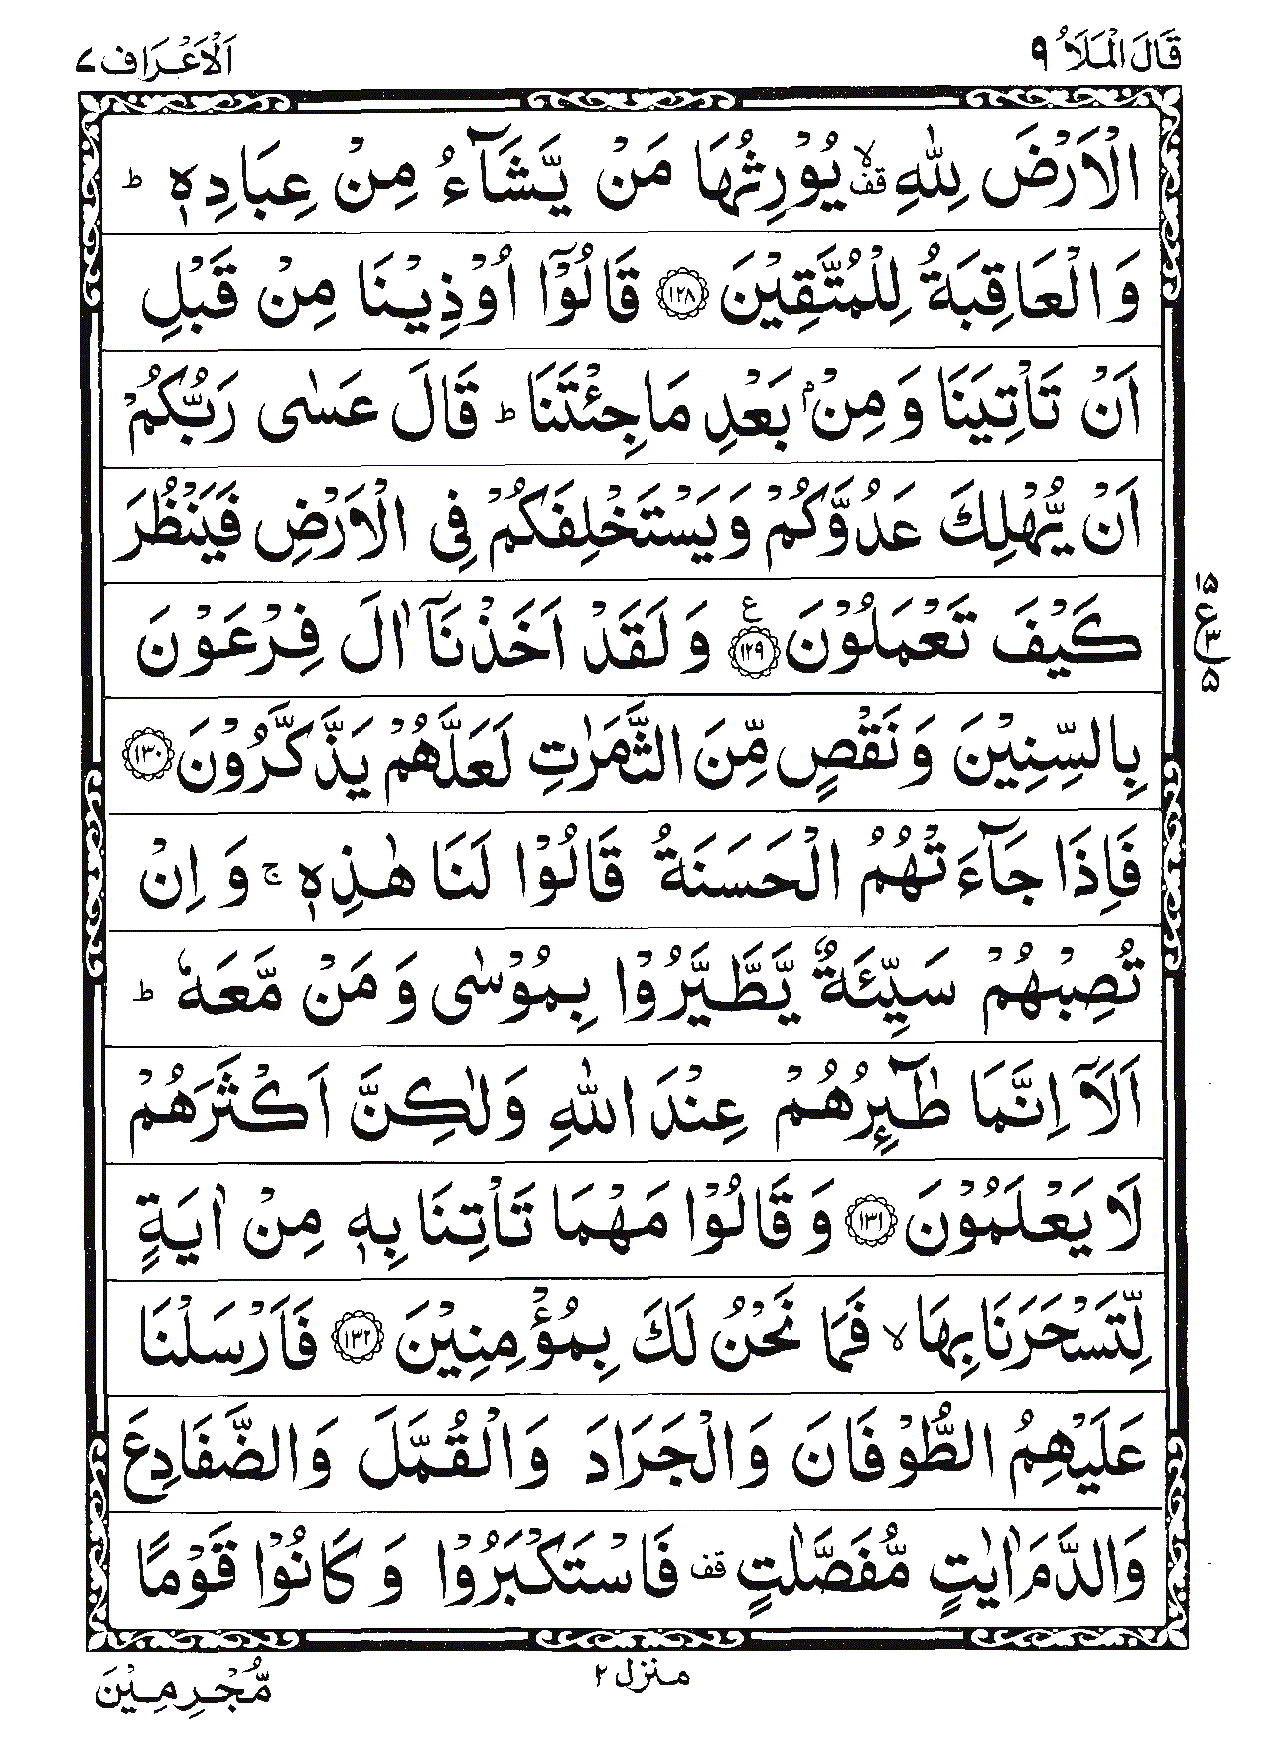 قَالَ الْمَلَاُ ٩
اَلْاَعْرَاف ٧
الْاَرْضَ لِلّٰهِ ۙ۫ یُوْرِثُهَا مَنْ یَّشَآءُ مِنْ عِبَادِهٖ ؕ
وَالْعَاقِبَةُ لِلْمُتَّقِیْنَ ۝۱۲۸ قَالُوْۤا اُوْذِیْنَا مِنْ قَبْلِ
اَنْ تَاْتِیَنَا وَ مِنْۢ بَعْدِ مَا جِئْتَنَا ؕ قَالَ عَسٰی رَبُّكُمْ
اَنْ یُّهْلِكَ عَدُوَّكُمْ وَ یَسْتَخْلِفَكُمْ فِی الْاَرْضِ فَیَنْظُرَ
كَیْفَ تَعْمَلُوْنَ ۝۱۲۹ ع وَ لَقَدْ اَخَذْنَاۤ اٰلَ فِرْعَوْنَ
۱۵ ع ۳ ۵
بِالسِّنِیْنَ وَ نَقْصٍ مِّنَ الثَّمَرٰتِ لَعَلَّهُمْ یَذَّكَّرُوْنَ ۝۱۳۰
فَاِذَا جَآءَتْهُمُ الْحَسَنَةُ قَالُوْا لَنَا هٰذِهٖ ۚ وَ اِنْ
تُصِبْهُمْ سَیِّئَةٌ یَّطَّیَّرُوْا بِمُوْسٰی وَ مَنْ مَّعَهٗ ؕ
اَلَاۤ اِنَّمَا طٰٓىِٕرُهُمْ عِنْدَ اللّٰهِ وَلٰكِنَّ اَكْثَرَهُمْ
لَا یَعْلَمُوْنَ ۝۱۳۱ وَ قَالُوْا مَهْمَا تَاْتِنَا بِهٖ مِنْ اٰیَةٍ
لِّتَسْحَرَنَا بِهَا ۙ فَمَا نَحْنُ لَكَ بِمُؤْمِنِیْنَ ۝۱۳۲ فَاَرْسَلْنَا
عَلَیْهِمُ الطُّوْفَانَ وَالْجَرَادَ وَالْقُمَّلَ وَالضَّفَادِعَ
وَالدَّمَ اٰیٰتٍ مُّفَصَّلٰتٍ ۫ فَاسْتَكْبَرُوْا وَ كَانُوْا قَوْمًا
منزل ۲
مُّجْرِمِیْنَ